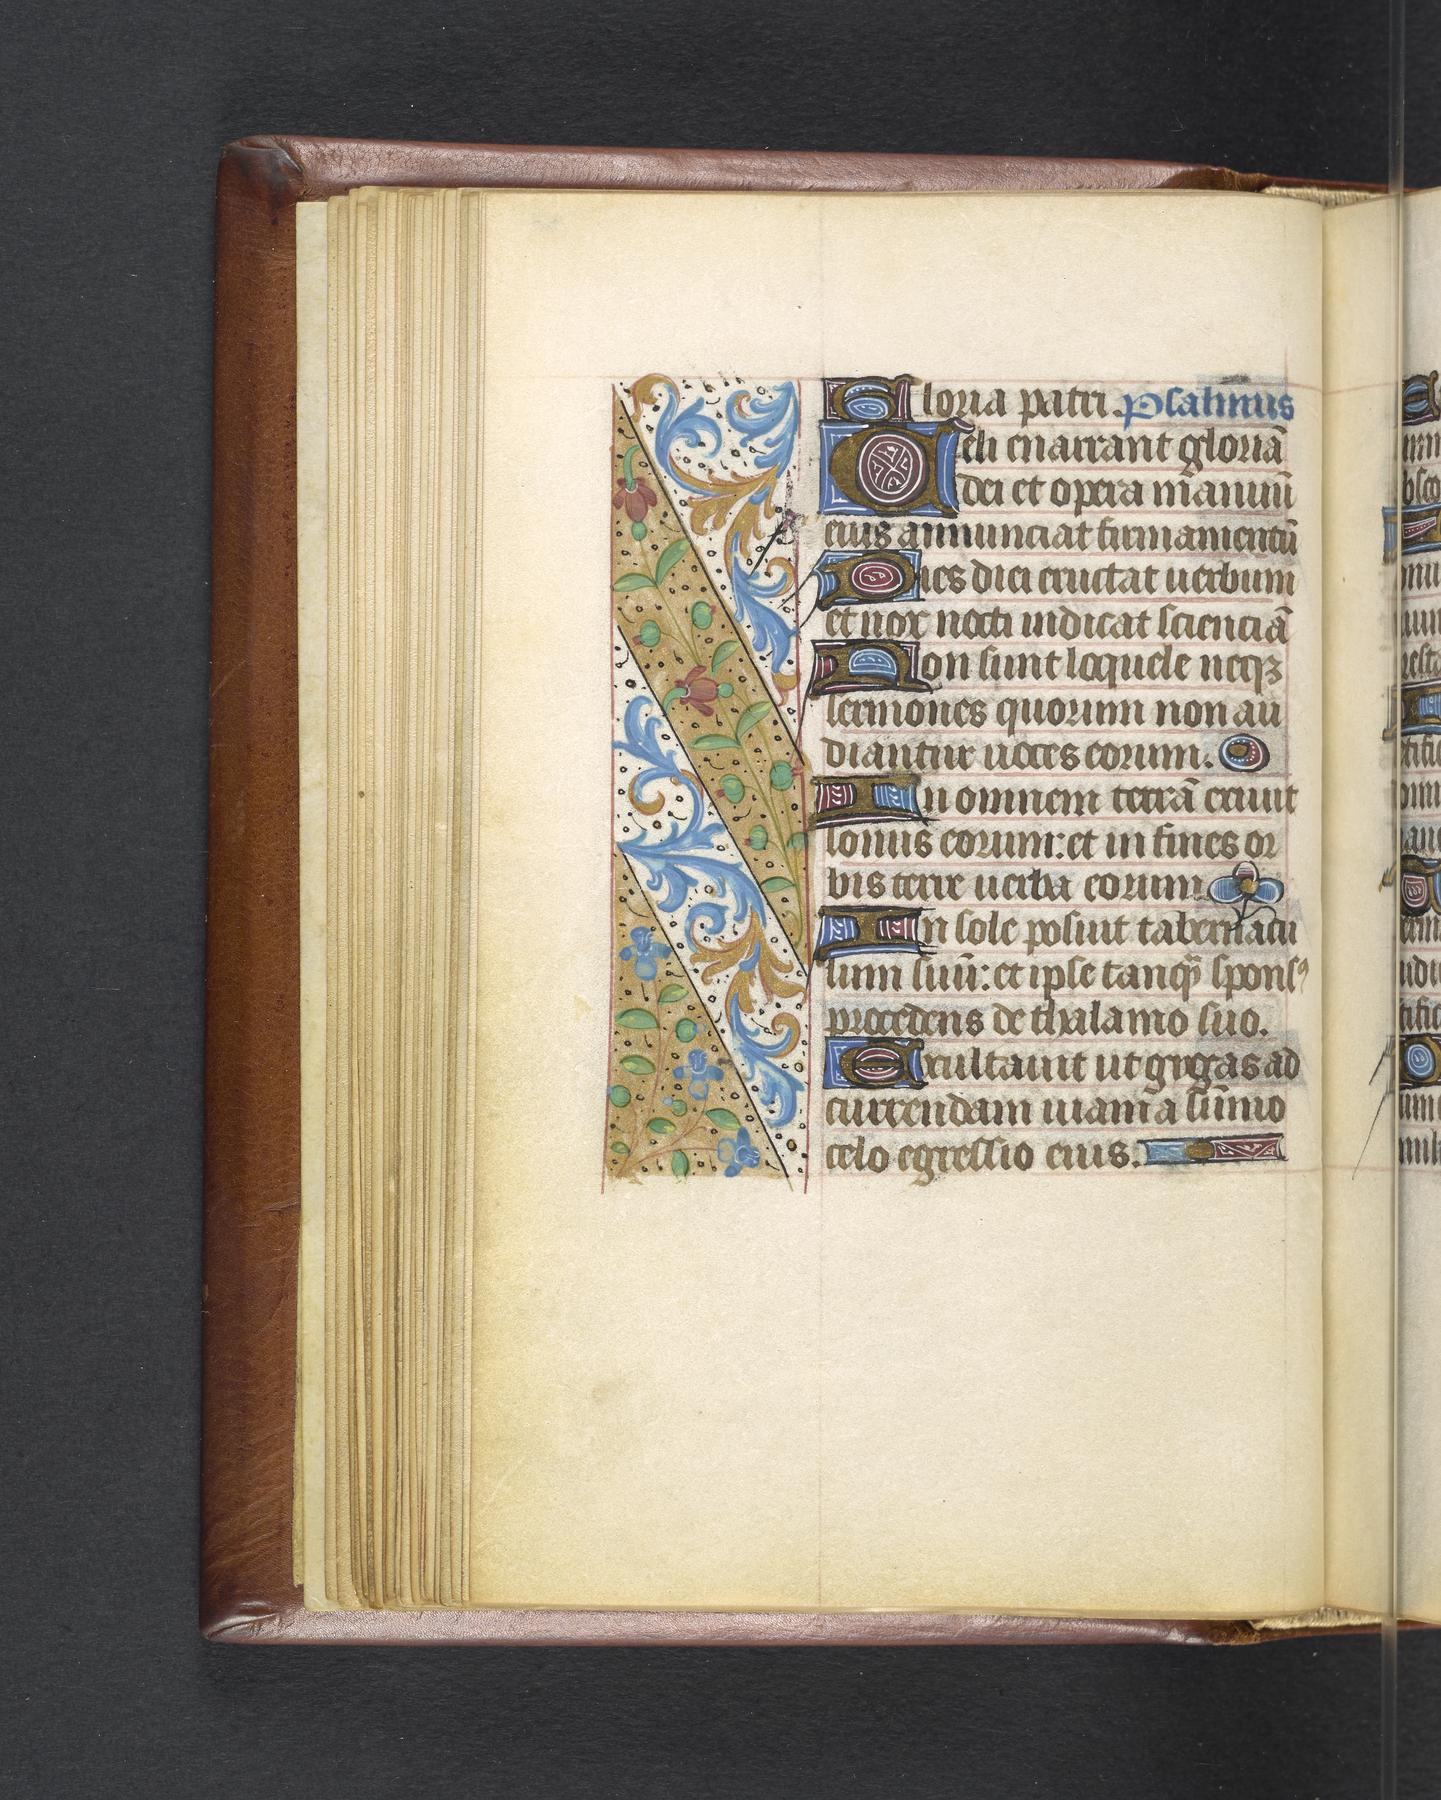 Gloria patri. Psalmus
Celi enarrant gloriā
dei et opera manuū
eius annunciat firmamentū
Dies diei eructat uerbum
et nox nocti indicat scienciā
Non sunt loquele neqꝫ
sermones quorum non au
diantur uoces eorum.
In omnem terrā exiuit
sonus eorum: et in fines or
bis terre uerba eorum
In sole posuit tabernacu
lum suū: et ipse tanq̄ sponsꝰ
procedens de thalamo suo.
Exultauit ut gygas ad
currendam uiam a sūmo
celo egressio eius.